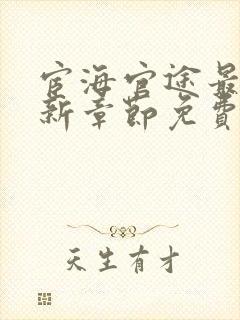 宦海官途最
新章节免费
天生有才